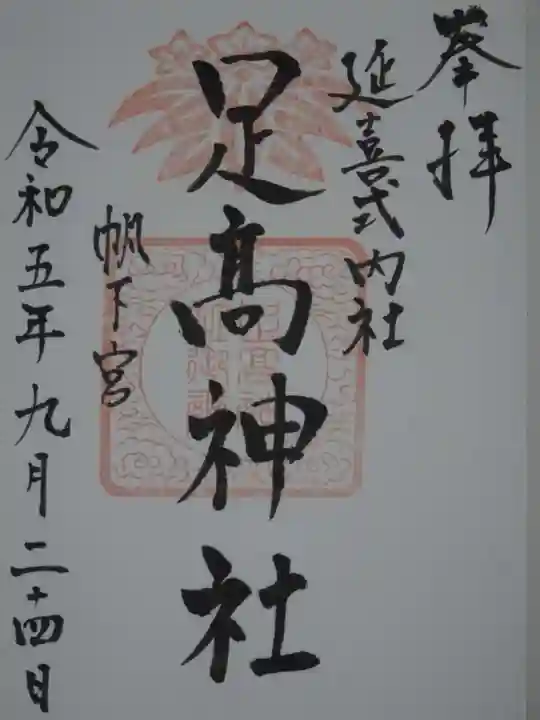 奉拝
延喜式内社
足髙神社
帆下宮
令和五年九月二十四日